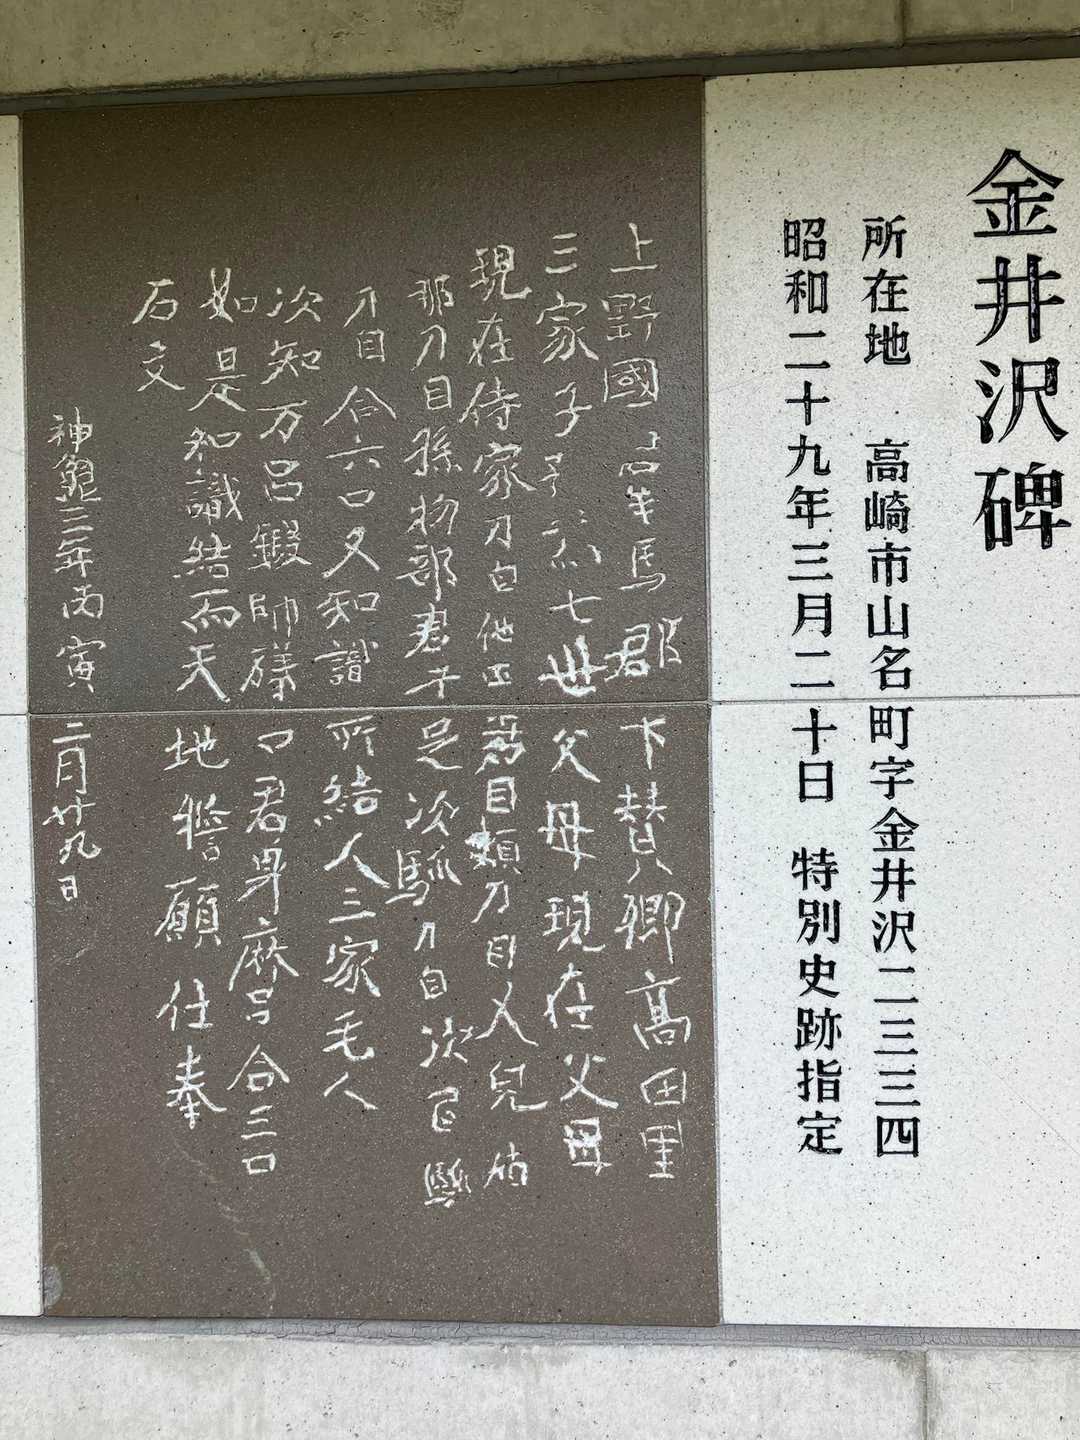 金井沢碑
所在地 高崎市山名町字金井沢二三三四
昭和二十九年三月二十日 特別史跡指定
上野國羣馬郡下賛郷高田里
三家子孫 七世父母現在父母
現在侍家刀自他田君目頬刀自又兒加
那刀自孫物部君午足次馴刀自次乙馴
刀自合六口又知識所結人三家毛人
次知万呂鍛師礒マ君身麻呂合三口
如是知識結而天地誓願仕奉
石文
神龜三年丙寅二月廿九日